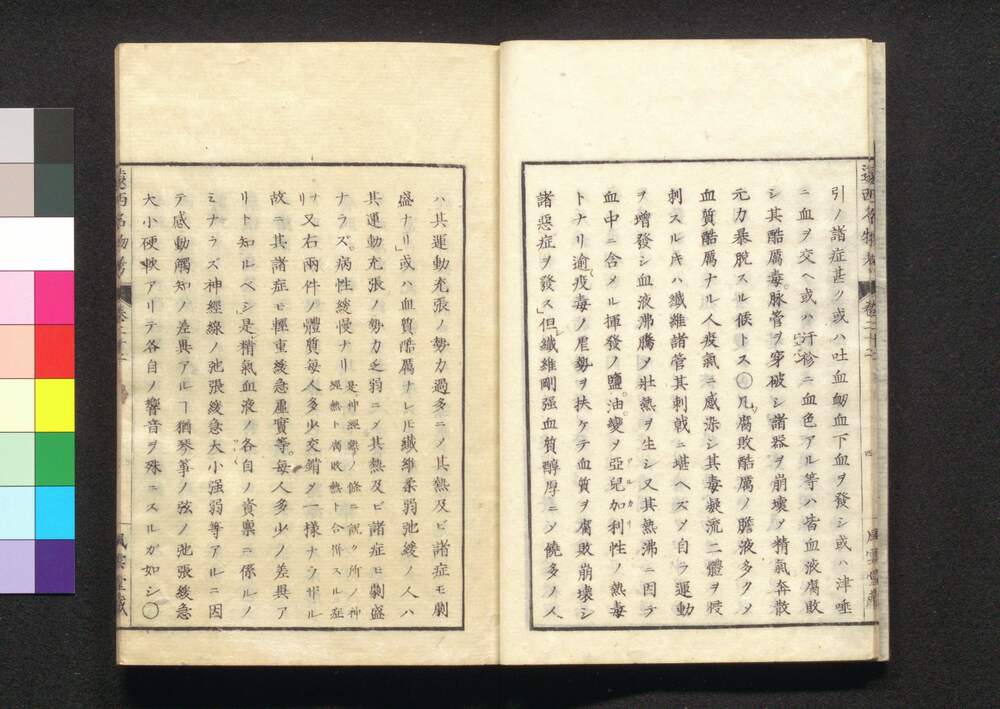 引ノ諸症甚ク或ハ吐血衂血下血ヲ發シ或ハ津唾
ニ血ヲ交ヘ或ハ汗疹ニ血色アル等ハ皆血液腐敗
シ其酷厲毒脉管ヲ穿破シ諸器ヲ崩壊メ精氣奔散
元力暴脫スル候トス〇凡腐敗酷厲ノ膽液多クメ
血質酷厲ナル人疫氣ニ感染シ其毒凝流二體ヲ
刺スルキハ纖維諸管其刺戟ニ堪ヘズメ自ラ運動
ヲ増發シ血液沸騰メ壯熱ヲ生シ又其熱沸ニ因テ
血中ニ含メル揮發ノ鹽油變メ亞兒加利性ノ熱毒
トナリ逾疫毒ノ虐勢ヲ扶ケテ血質ヲ腐敗崩壊シ
諸惡症ヲ發ス」但纖維剛强血質醇厚ニメ饒多ノ人
遠西名物考
卷二十二
四
風雲堂藏
ハ其運動充張ノ勢力過多ニメ其熱及ビ諸症モ劇
盛ナリ」或ハ血質酷厲ナレ𪜈纖維柔弱弛緩ノ人ハ
其運動充張ノ勢力乏弱ニメ其熱及ビ諸症モ劇盛
ナラズ病性緩慢ナリ是神經熱ノ條ニ說ク所ノ神
經熱ト腐敗熱ト合併スル症
ナリ又右兩件ノ體質每人多少交錯メ一樣ナラザル
故ニ其諸症モ輕重緩急虛實等每人多少ノ差異ア
リト知ルベシ」是精氣血液ノ各自ノ資稟ニ係ルノ
ミナラズ神經線ノ弛張緩急大小强弱等アルニ因
テ感動觸知ノ差異アルヿ猶琴箏ノ弦ノ弛張緩急
大小硬軟アリテ各自ノ響音ヲ殊ニスルガ如シ〇
遠西名物考
卷二十二
風雲堂藏